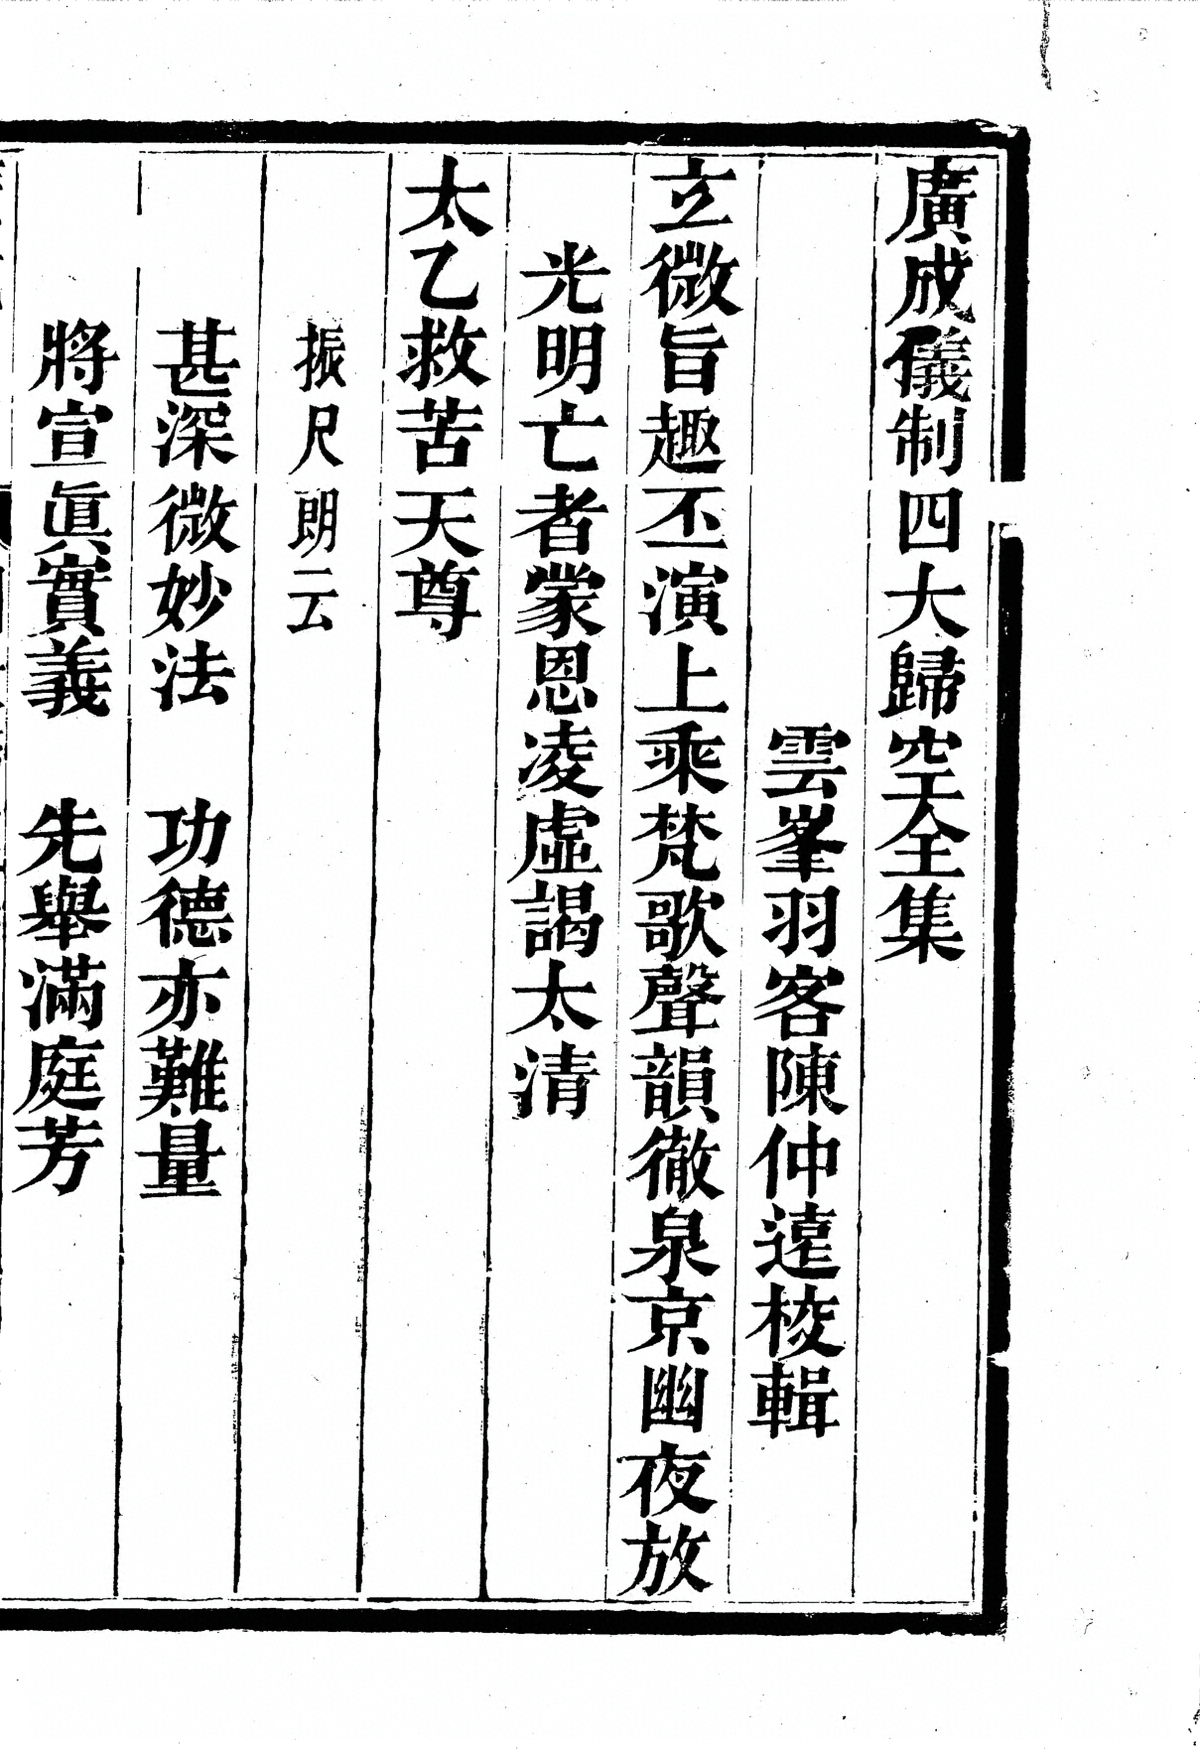 廣成儀制四大歸空全集
雲峯羽客陳仲遠校輯
立微旨趣丕演上乘梵歌聲韻徹泉京幽夜放
光明亡者蒙恩凌虛謁太清
太乙救苦天尊
振尺朗云
甚深微妙法　功德亦難量
將宣眞實義　先舉滿庭芳